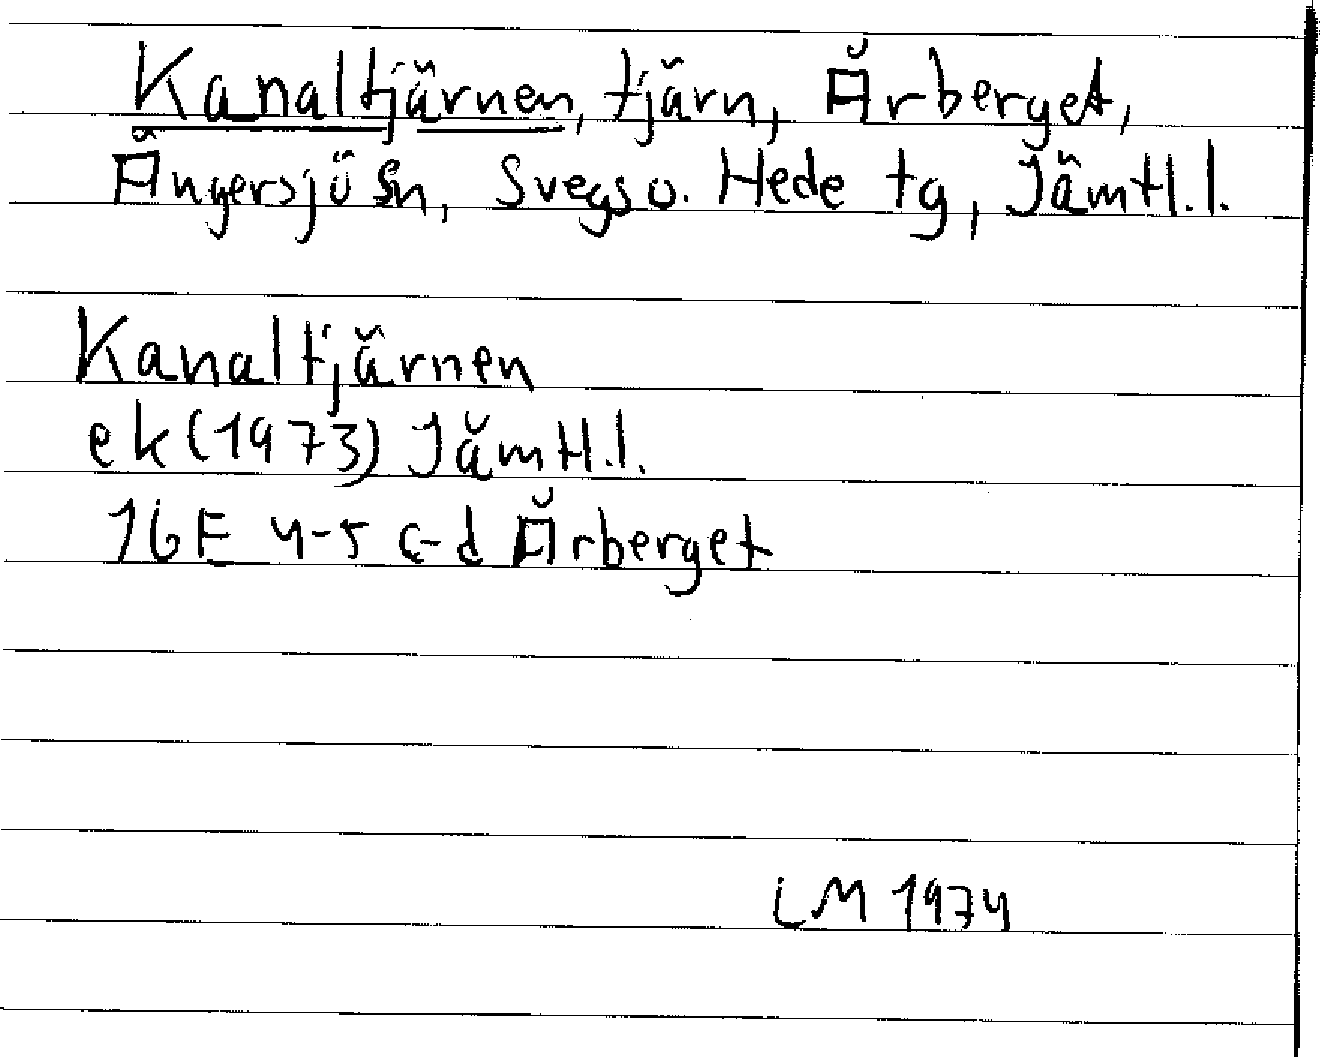 Kanaltjärnen, tjärn, Ärberget,
Ängersjö sn, Svegs o. Hede tg, Jämtl.l.
Kanaltjärnen
ek (1973) Jämtl.l.
16E 4-5 c-d Ärberget
LM 1974